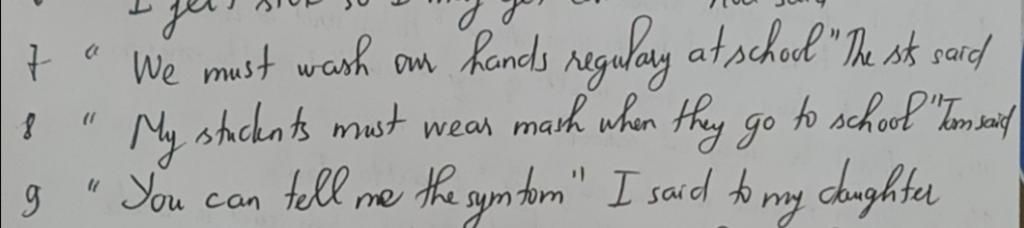 7 " We must wash our hands regulary at school" The sts said
8 " My students must wear mask when they go to school" Tom said
9 " You can tell me the symtom" I said to my daughter